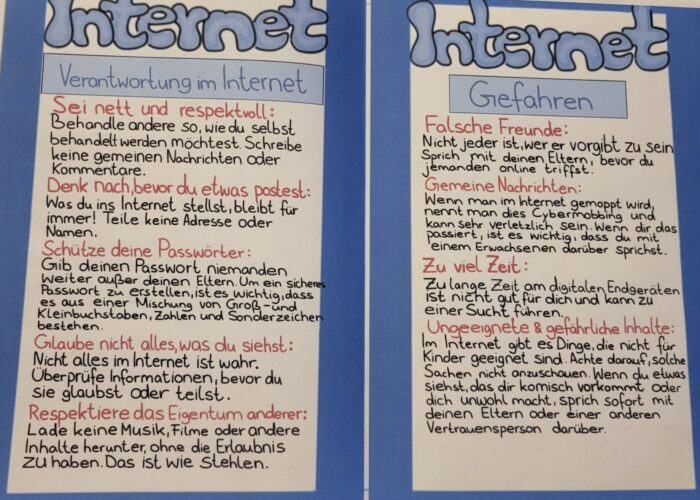 Internet
Verantwortung im Internet
Sei nett und respektvoll:
Behandle andere so, wie du selbst
behandelt werden möchtest. Schreibe
keine gemeinen Nachrichten oder
Kommentare.
Denk nach, bevor du etwas postest:
Was du ins Internet stellst, bleibt für
immer! Teile keine Adresse oder
Namen.
Schütze deine Passwörter:
Gib deinen Passwort niemanden
weiter außer deinen Eltern. Um ein sicheres
Passwort zu erstellen, ist es wichtig, dass
es aus einer Mischung von Groß- und
Kleinbuchstaben, Zahlen und Sonderzeichen
bestehen.
Glaube nicht alles, was du siehst:
Nicht alles im Internet ist wahr.
Überprüfe Informationen, bevor du
sie glaubst oder teilst.
Respektiere das Eigentum anderer:
Lade keine Musik, Filme oder andere
Inhalte herunter, ohne die Erlaubnis
zu haben. Das ist wie Stehlen.
Internet
Gefahren
Falsche Freunde:
Nicht jeder ist, wer er vorgibt zu sein
Sprich mit deinen Eltern, bevor du
jemanden online triffst.
Gemeine Nachrichten:
Wenn man im Internet gemoppt wird,
nennt man dies Cybermobbing und
kann sehr verletzlich sein. Wenn dir das
passiert, ist es wichtig, dass du mit
einem Erwachsenen darüber sprichst.
Zu viel Zeit:
Zu lange Zeit am digitalen Endgeräten
ist nicht gut für dich und kann zu
einer Sucht führen.
Ungeeignete & gefährliche Inhalte:
Im Internet gibt es Dinge, die nicht für
Kinder geeignet sind. Achte darauf, solche
Sachen nicht anzuschauen. Wenn du etwas
siehst, das dir komisch vorkommt oder
dich unwohl macht, sprich sofort mit
deinen Eltern oder einer anderen
Vertrauensperson darüber.